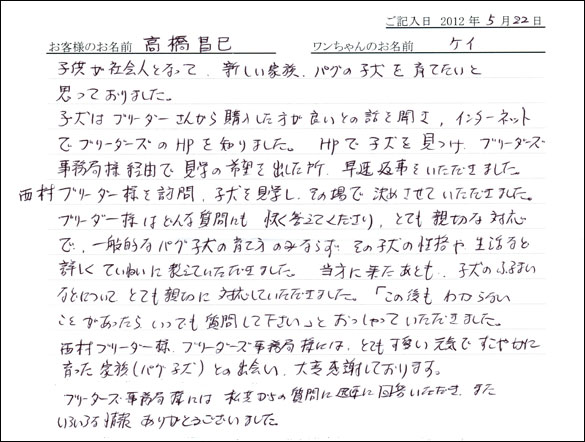 ご記入日 2012 年 5 月 22 日
お客様のお名前 高橋昌巳 ワンちゃんのお名前 ケイ
子供が社会人となって、新しい家族、パグの子犬を育てたいと
思っておりました。
子犬はブリーダーさんから購入した方が良いとの話を聞き、インターネット
でブリーダーズのHPを知りました。 HPで子犬を見つけ、ブリーダーズ
事務局様経由で見学の希望を出した所、早速返事をいただきました。
西村ブリーダー様を訪問、子犬を見学し、その場で決めさせていただきました。
ブリーダー様はどんな質問にも快く答えてくださり、とても親切な対応
で、一般的なパグ子犬の育て方のみならず、その子犬の性格や生活など
詳しくていねいに教えていただきました。 当方に来たあとも、子犬のふるまい
などについてとても親切に対応していただきました。「この後もわからない
ことがあったらいつでも質問して下さい」とおっしゃっていただきました。
西村ブリーダー様、ブリーダーズ事務局様には、とても可愛い元気ですこやかに
育った家族(パグ子犬)との出会い、大変感謝しております。
ブリーダーズ事務局様には私共からの質問に迅速に回答いただき、また
いろいろな情報ありがとうございました。